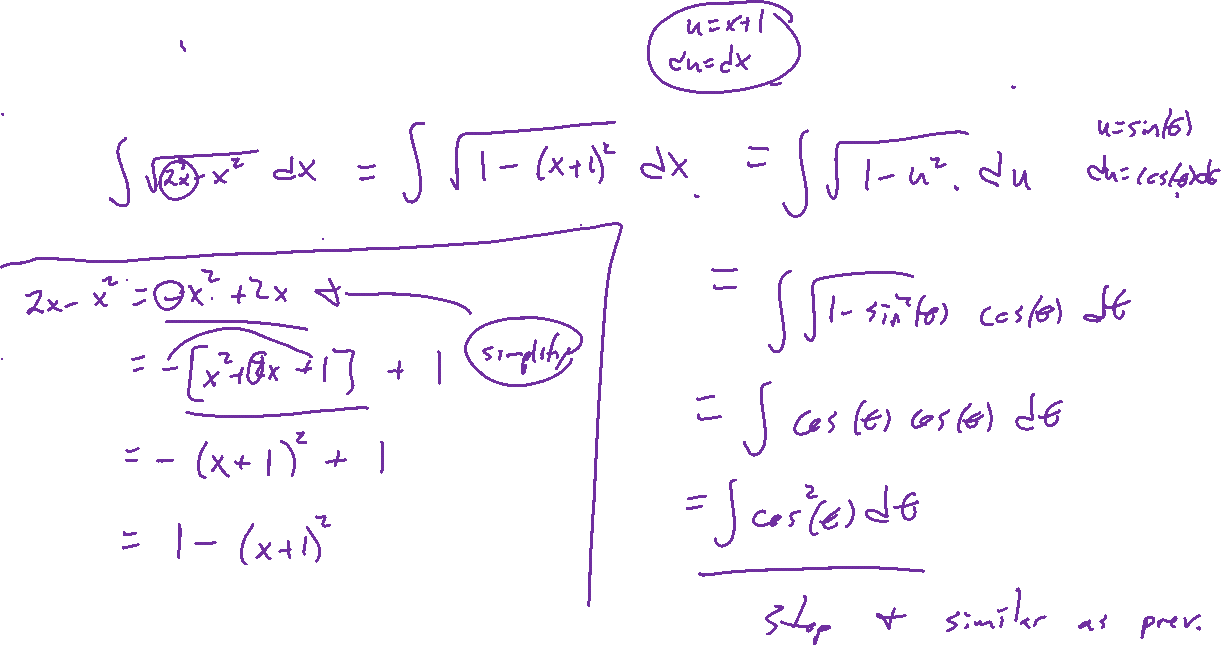 u=x+1
du=dx
∫√(2x-x²) dx = ∫√(1-(x+1)²) dx = ∫√(1-u²) du
u=sin(θ)
du=cos(θ)dθ
2x-x² = -x²+2x
simplify
= -[x²+2x+1] + 1
= -(x+1)² + 1
= 1-(x+1)²
= ∫√(1-sin²(θ)) cos(θ) dθ
= ∫ cos(θ) cos(θ) dθ
= ∫ cos²(θ) dθ
stop
similar as prev.